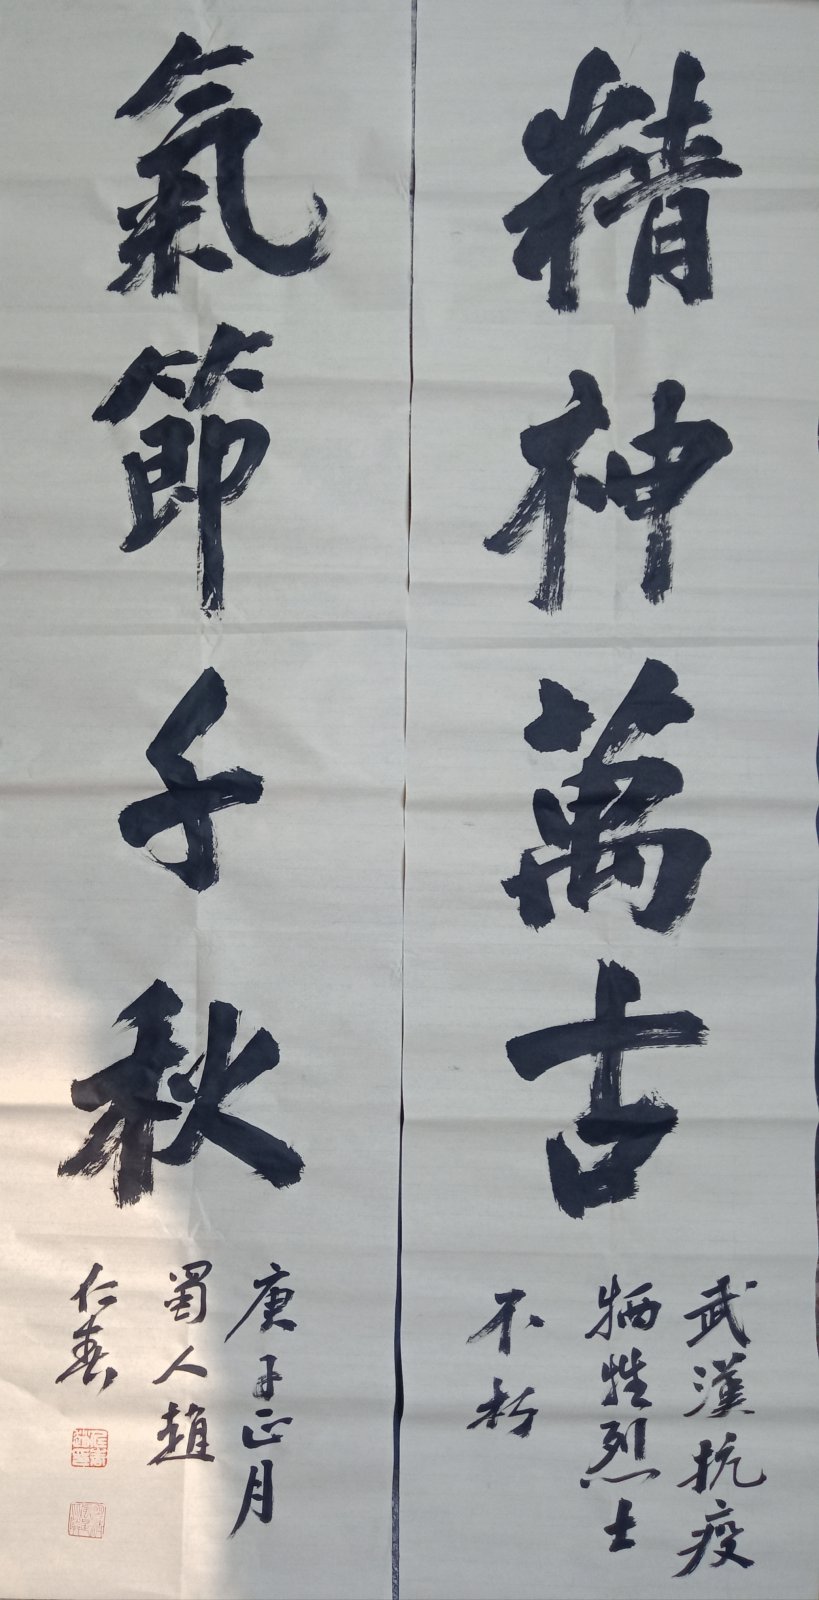 精神萬古
武漢抗疫
牺牲烈士
不朽
氣節千秋
庚子正月
蜀人趙
仁春